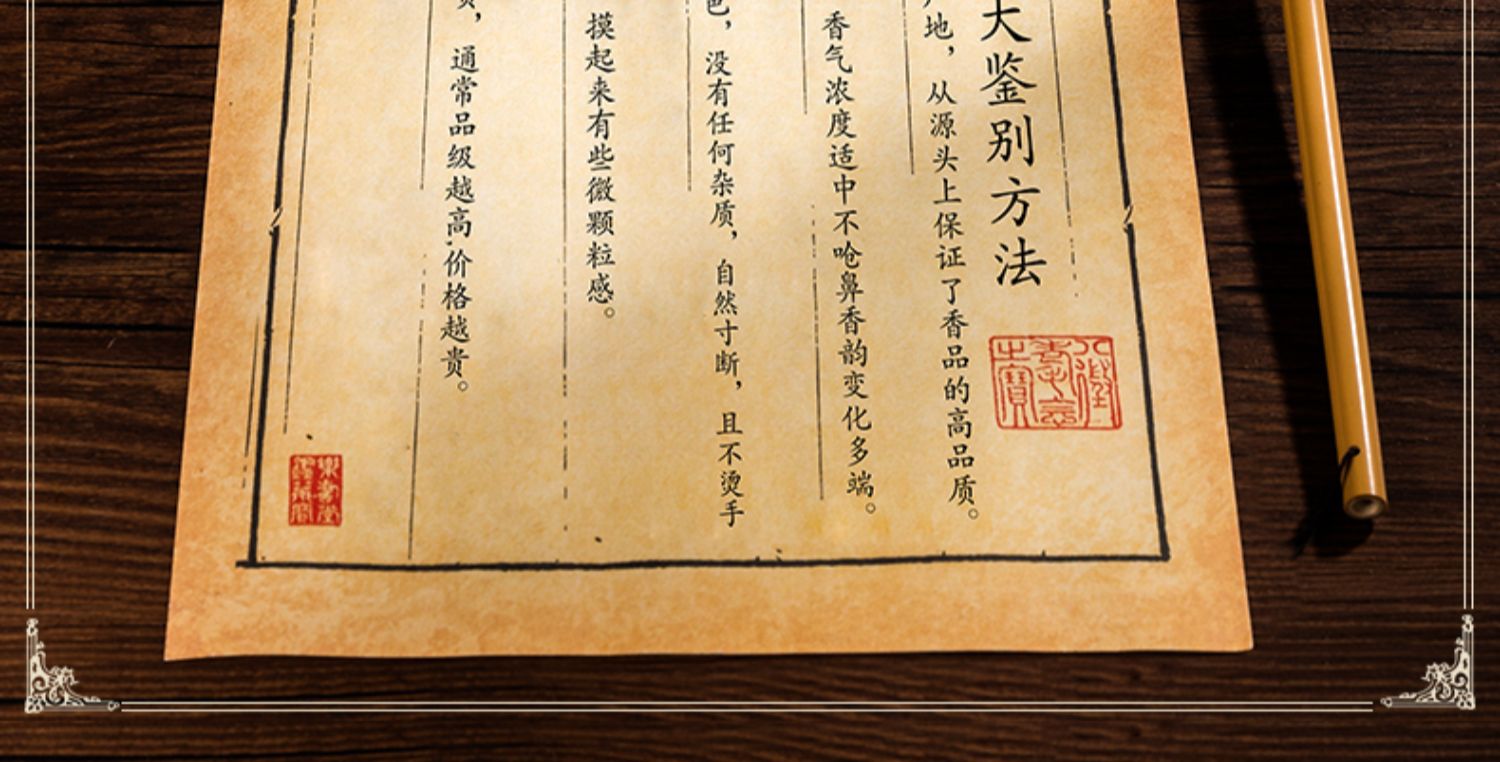 大鉴别方法
地，从源头上保证了香品的高品质。
香气浓度适中不呛鼻香韵变化多端。
色，没有任何杂质，自然寸断，且不烫手
摸起来有些微颗粒感。
通常品级越高,价格越贵。